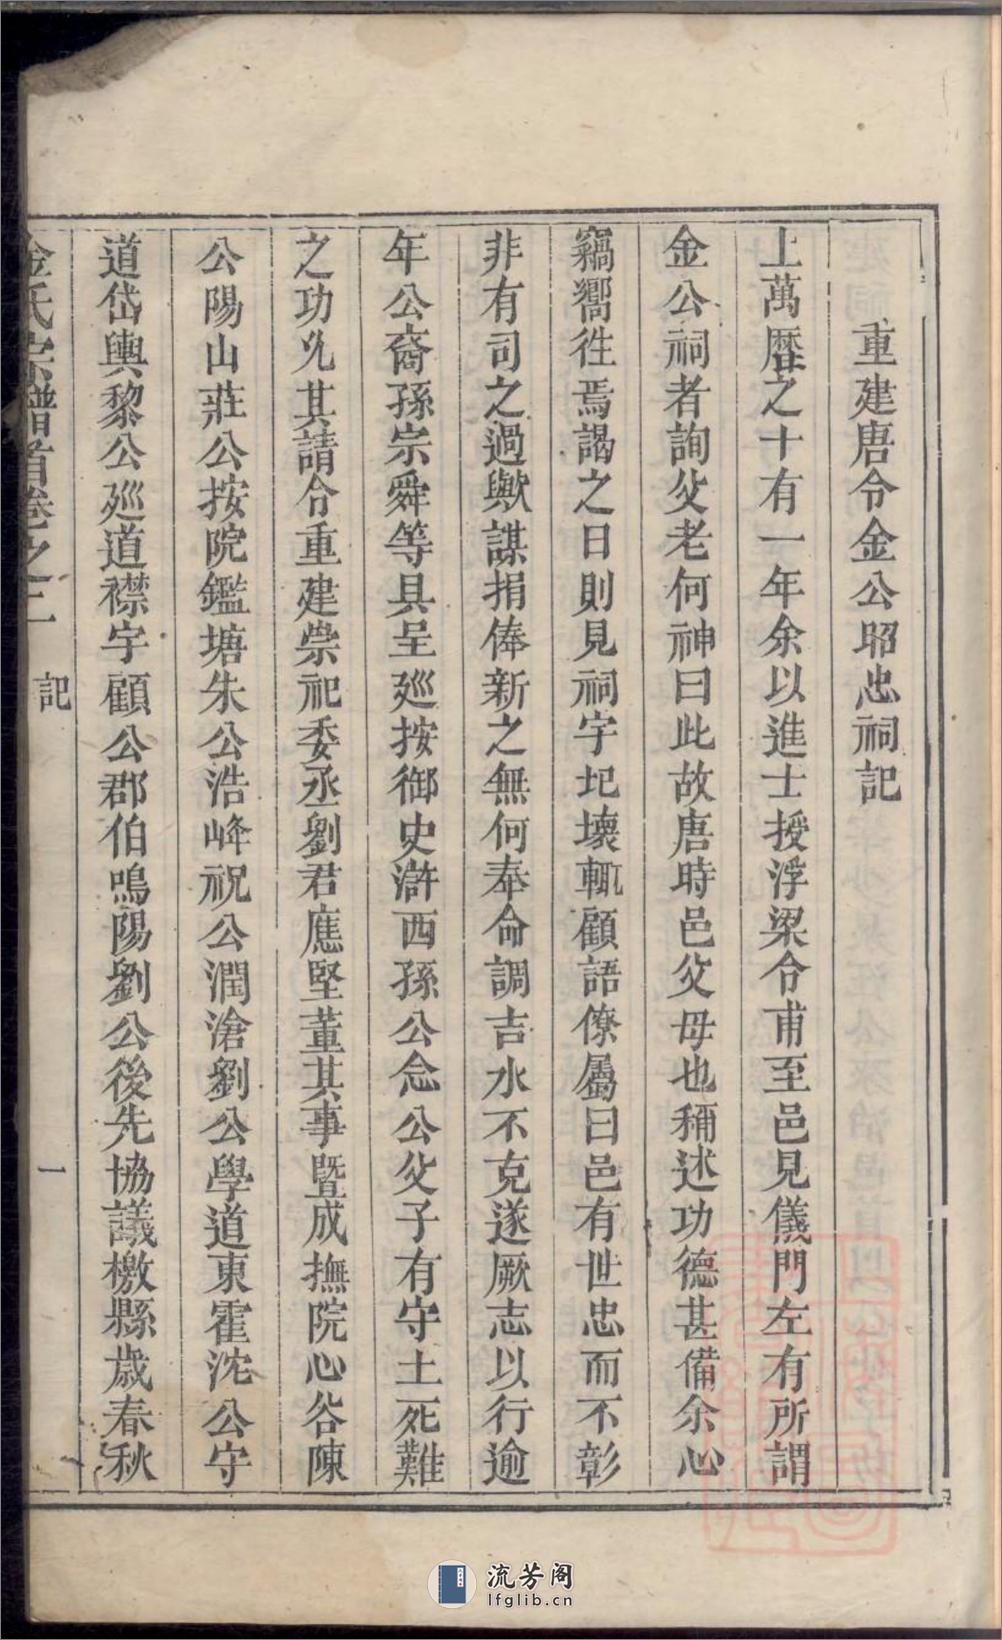 重建唐令金公昭忠祠記
上萬曆之十有一年余以進士授浮梁令甫至邑見儀門左有所謂
金公祠者詢父老何神曰此故唐時邑父母也稱述功德甚備余心
竊嚮徃焉謁之日則見祠宇圮壞輒顧語僚屬曰邑有世忠而不彰
非有司之過歟謀捐俸新之無何奉命調吉水不克遂厥志以行逾
年公裔孫宗舜等具呈廵按御史滸西孫公念公父子有守土死難
之功允其請令重建崇祀委丞劉君應堅董其事暨成撫院心谷陳
公陽山莊公按院鑑塘朱公浩峰祝公潤滄劉公學道東霍沈公守
道岱輿黎公廵道襟宇顧公郡伯鳴陽劉公後先協議檄縣歲春秋
金氏宗譜首卷之二 記 一
流芳阁
lfglib.cn